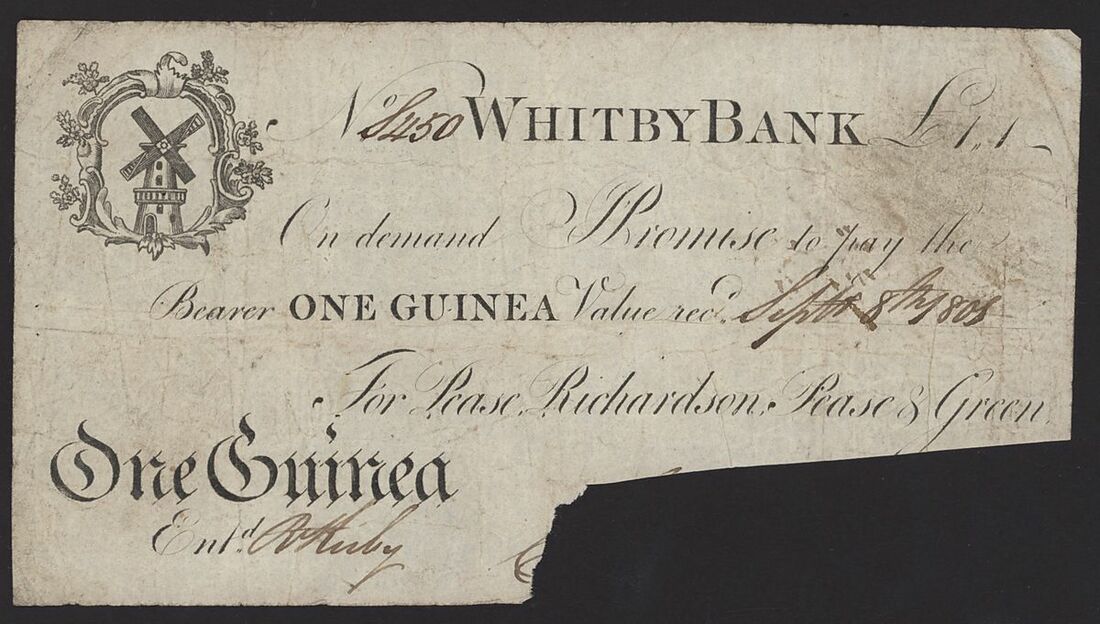 No S450 WHITBY BANK £1,,1
On demand I Promise to pay the
Bearer ONE GUINEA Value rec.d Septr 8th 1808
For Pease, Richardson, Pease & Green.
One Guinea
Ent.d